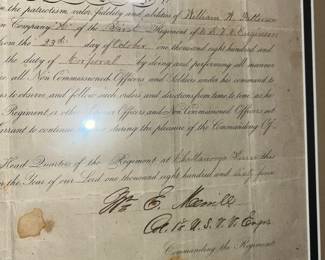 the patriotism valor, fidelity and abilities of William R. Patterson
Company "A" of the First Regiment of U.S.V.V. Engineers
the 29th day of October one thousand eight hundred and
the duty of Corporal by doing and performing all manner
all Non Commissioned Officers and Soldiers under his command to
to observe, and follow such orders and directions from time to time, as he
Regiment or other Officers and Non Commissioned Officers set
arrant to continue in force during the pleasure of the Commanding Of-
Head Quarters of the Regiment at Chattanooga Tenn. this
in the Year of our Lord one thousand eight hundred and sixty four
Wm E. Merrill
Col 1st U.S.V.V. Engrs
Commanding the Regiment